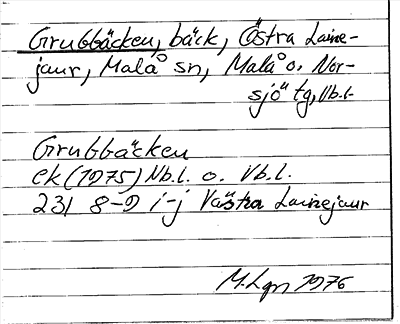 Grubbäcken, bäck, Östra Laine-
jaur, Malå sn, Malå o. Nor-
sjö tg, Vb.l.
Grubbäcken
ek (1975) Nb.l. o. Vb.l.
23I 8-9 i-j Västra Lainejaur
M.Lgn 1976